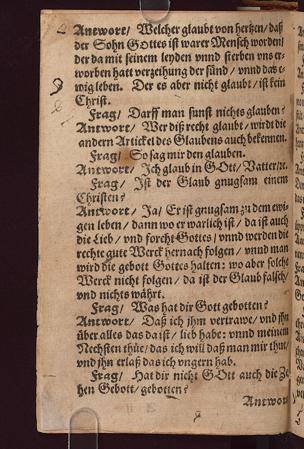 Antwort/ Welcher glaubt von hertzen/ daß
der Sohn GOttes ist warer Mensch worden/
der da mit seinem leyden vnnd sterben vns er-
worben hatt verzeihung der sünd/ vnnd das e-
wig leben. Der es aber nicht glaubt/ ist kein
Christ.
Frag/ Darff man sunst nichts glauben?
Antwort/ Wer diß recht glaubt/ wirdt die
andern Artickel des Glaubens auch bekennen.
Frag/ So sag mir den glauben.
Antwort/ Ich glaub in GOtt/ Vatter/ꝛc.
Frag/ Ist der Glaub gnugsam einem
Christen?
Antwort/ Ja/ Er ist gnugsam zu dem ewi-
gen leben/ dann wo er warlich ist/ da ist auch
die Lieb/ vnd forcht Gottes/ vnnd werden die
rechte gute Werck hernach folgen/ vnnd man
wird die gebott Gottes halten: wo aber solche
Werck nicht folgen/ da ist der Glaub falsch/
vnd nichts währt.
Frag/ Was hat dir Gott gebotten?
Antwort/ Daß ich jhm vertrawe/ vnd jhn
über alles das da ist/ lieb habe: vnnd meinem
Nechsten thüe/ das ich will daß man mir thue/
vnd jhn erlaß das ich vngern hab.
Frag/ Hat dir nicht GOtt auch die Ze-
hen Gebott/ gebotten?
Antwort